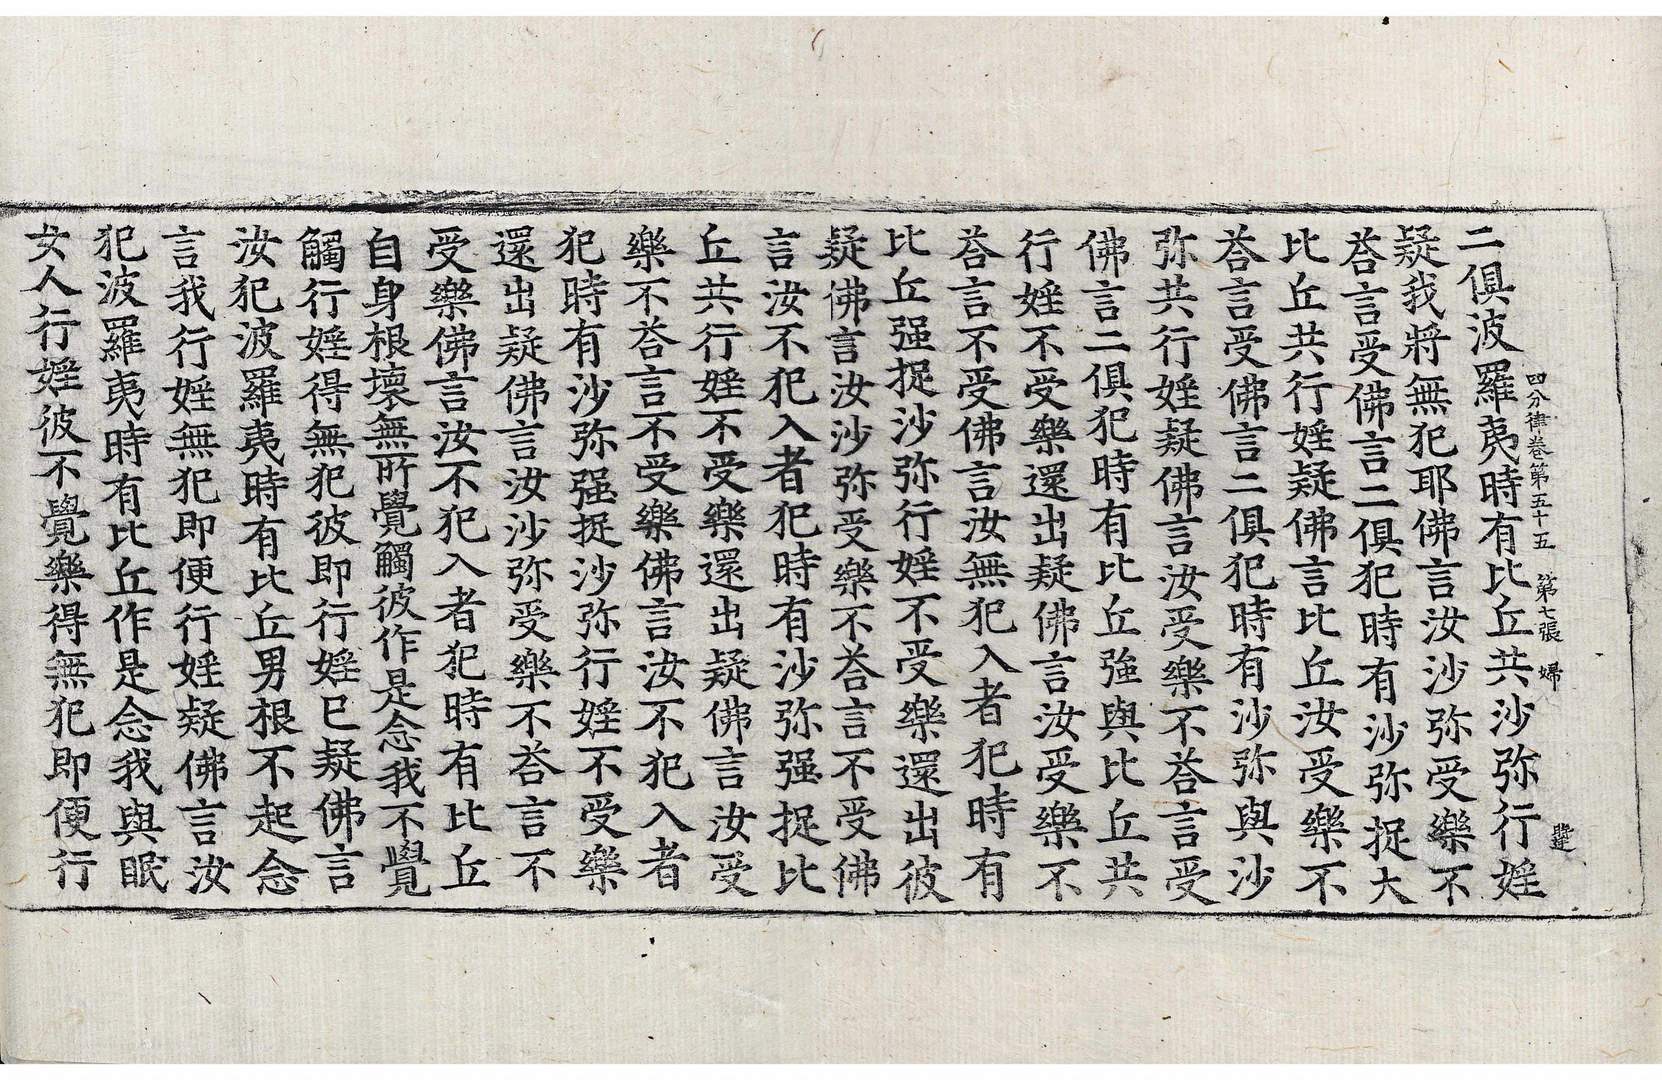 四分律卷第五十五 第七張 婦
二俱波羅夷時有比丘共沙弥行婬
疑我將無犯耶佛言汝沙弥受樂不
荅言受佛言二俱犯時有沙弥捉大
比丘共行婬疑佛言比丘汝受樂不
荅言受佛言二俱犯時有沙弥與沙
弥共行婬疑佛言汝受樂不荅言受
佛言二俱犯時有比丘強與比丘共
行婬不受樂還出疑佛言汝受樂不
荅言不受佛言汝無犯入者犯時有
比丘强捉沙弥行婬不受樂還出彼
疑佛言汝沙弥受樂不荅言不受佛
言汝不犯入者犯時有沙弥强捉比
丘共行婬不受樂還出疑佛言汝受
樂不荅言不受樂佛言汝不犯入者
犯時有沙弥强捉沙弥行婬不受樂
還出疑佛言汝沙弥受樂不荅言不
受樂佛言汝不犯入者犯時有比丘
自身根壞無所覺觸彼作是念我不覺
觸行婬得無犯彼即行婬已疑佛言
汝犯波羅夷時有比丘男根不起念
言我行婬無犯即便行婬疑佛言汝
犯波羅夷時有比丘作是念我與眠
女人行婬彼不覺樂得無犯即便行